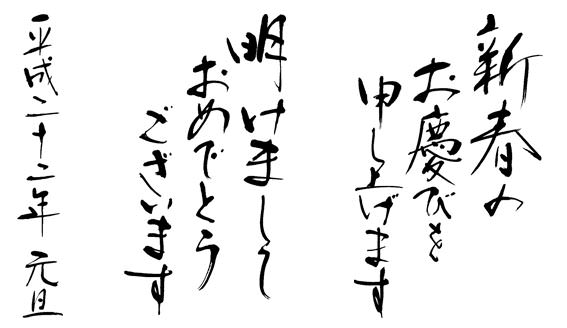 新春の
お慶びを
申し上げます
明けまして
おめでとう
ございます
平成二十二年 元旦